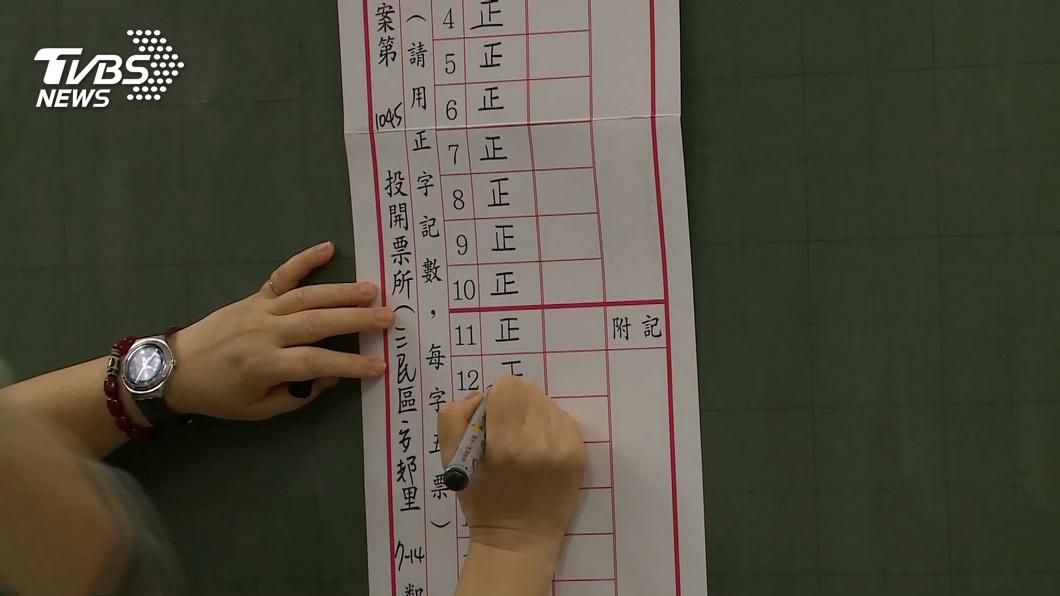 TVBS
NEWS
案第 1045 投開票所(三民區安邦里 7-14
(請用正字記數,每字五票)
4 正
5 正
6 正
7 正
8 正
9 正
10 正
11 正
12 正
附記